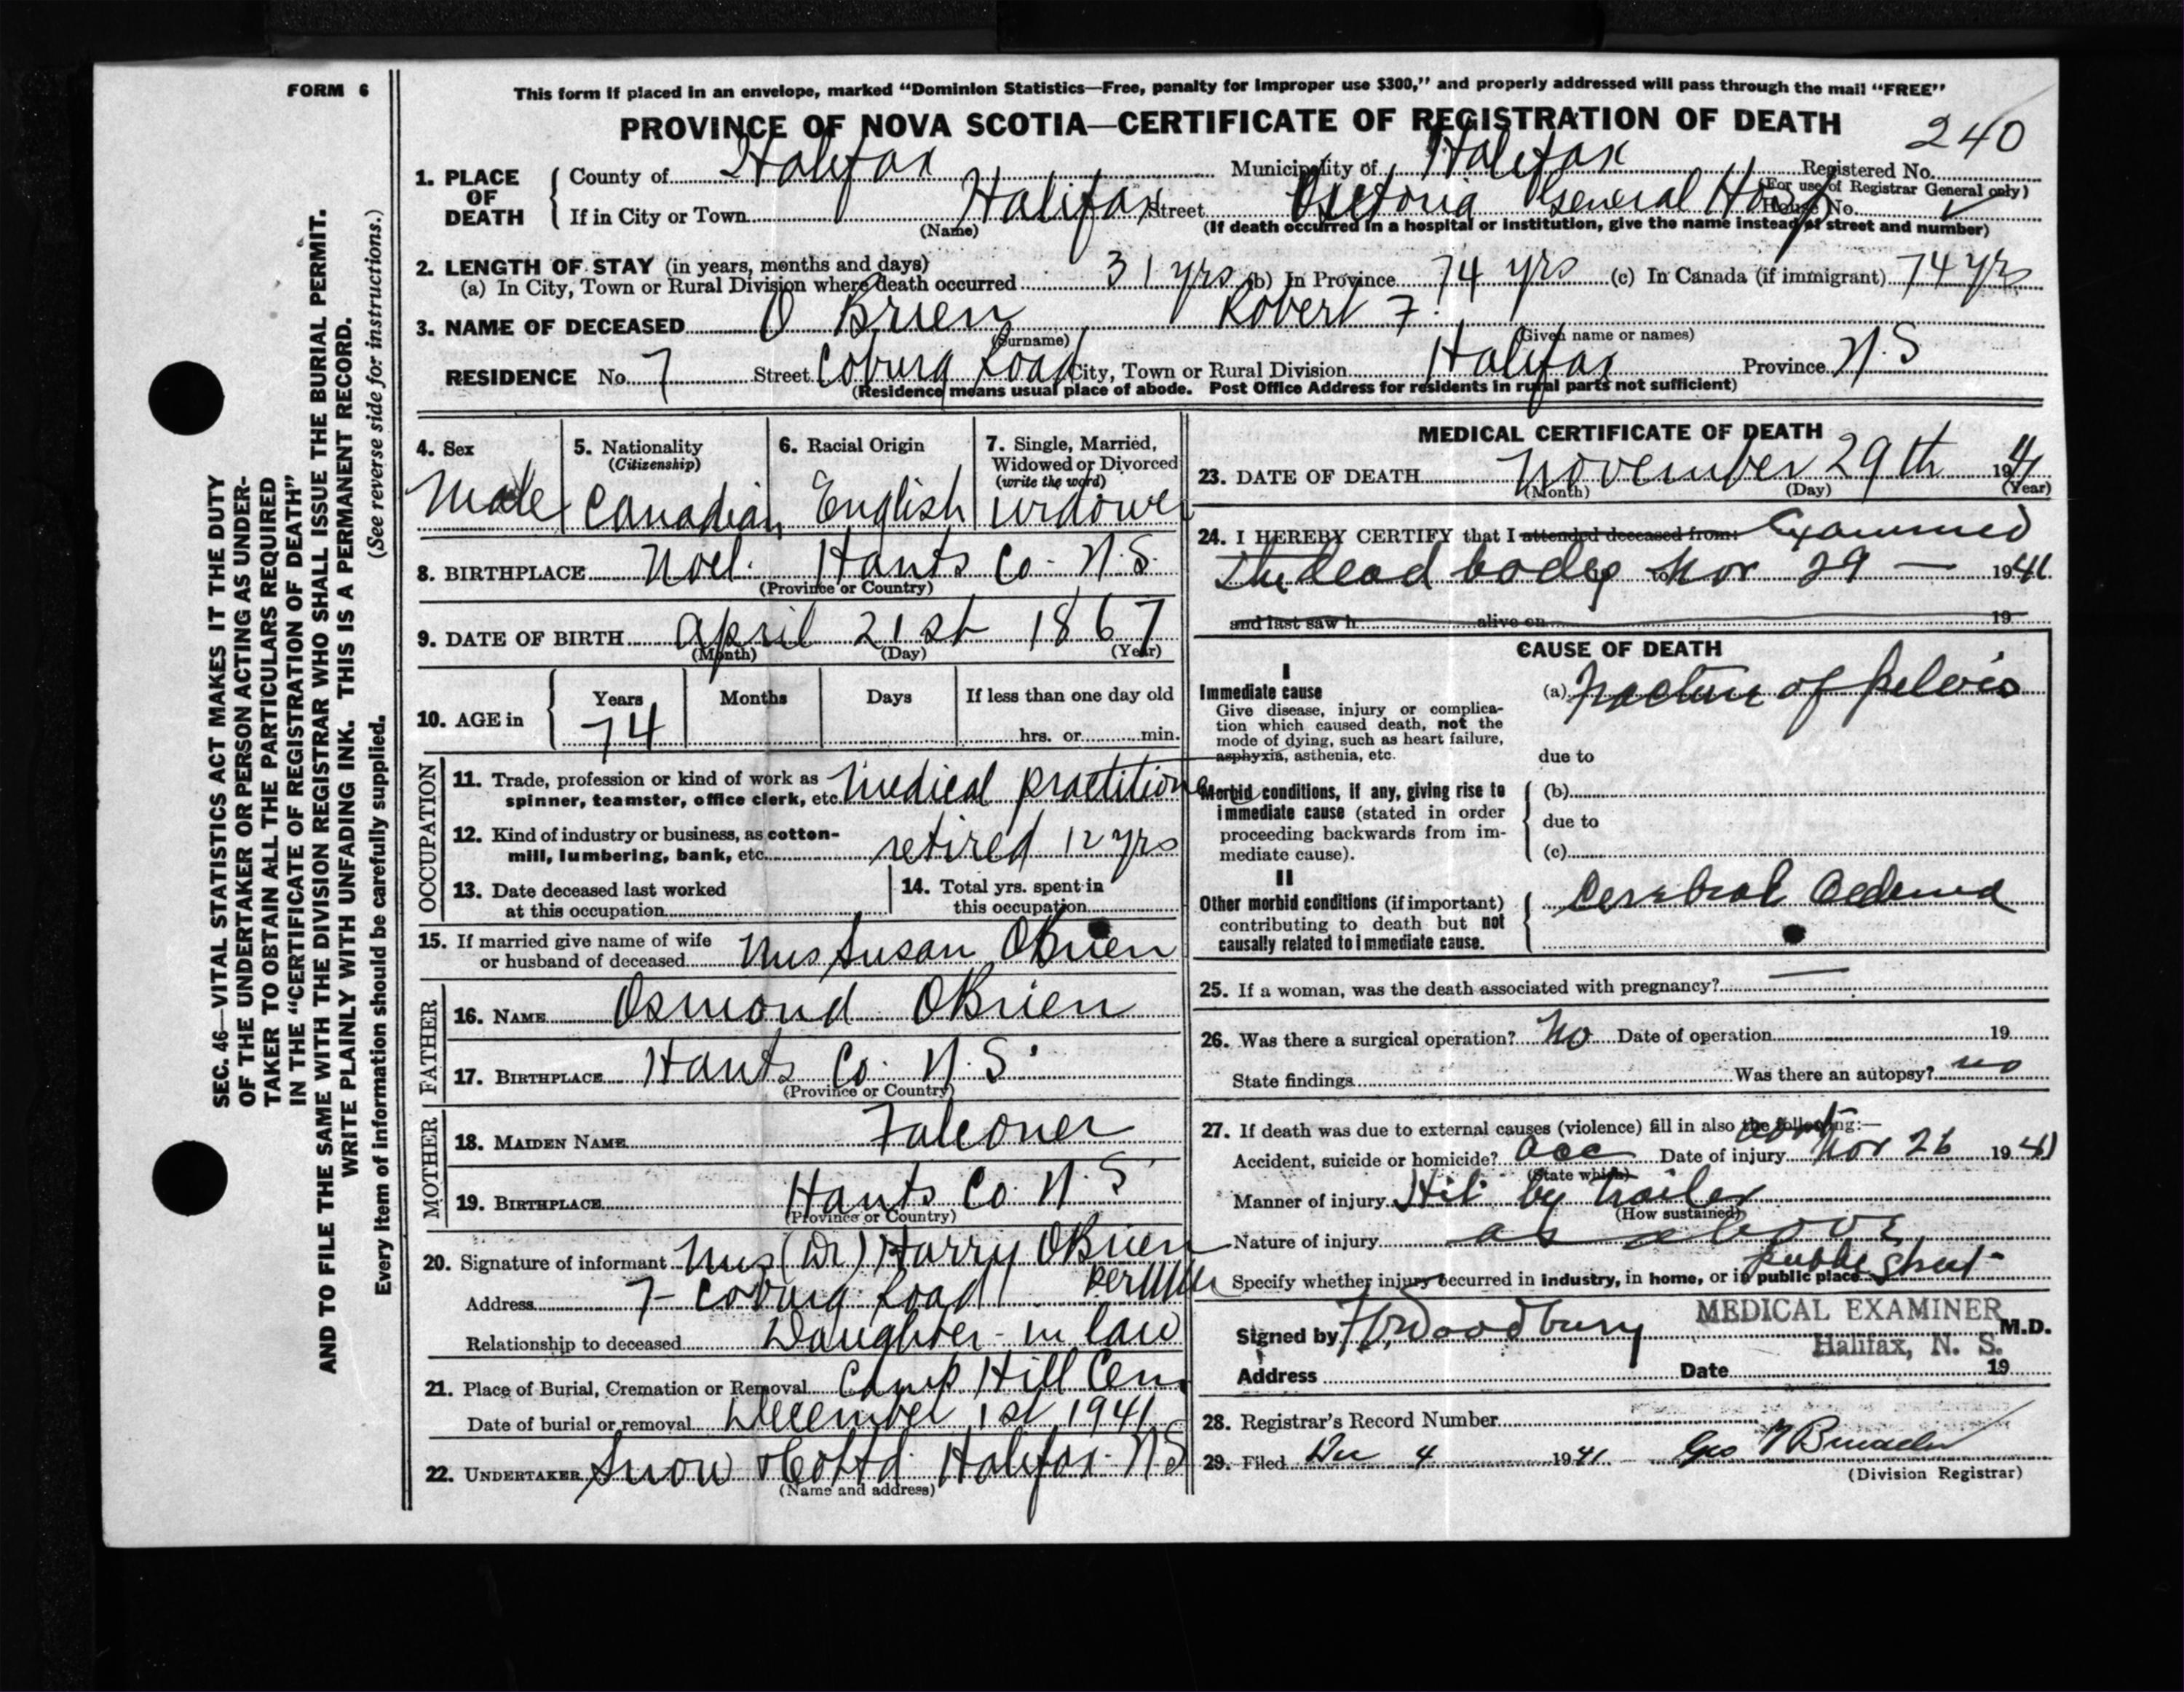 FORM 6
This form if placed in an envelope, marked "Dominion Statistics—Free, penalty for improper use $300," and properly addressed will pass through the mail "FREE"
PROVINCE OF NOVA SCOTIA—CERTIFICATE OF REGISTRATION OF DEATH
240
SEC. 46—VITAL STATISTICS ACT MAKES IT THE DUTY
OF THE UNDERTAKER OR PERSON ACTING AS UNDER-
TAKER TO OBTAIN ALL THE PARTICULARS REQUIRED
IN THE "CERTIFICATE OF REGISTRATION OF DEATH"
AND TO FILE THE SAME WITH THE DIVISION REGISTRAR WHO SHALL ISSUE THE BURIAL PERMIT.
WRITE PLAINLY WITH UNFADING INK. THIS IS A PERMANENT RECORD.
(See reverse side for instructions.)
Every item of information should be carefully supplied.
1. PLACE OF DEATH
County of Halifax Municipality of Halifax Registered No.
(For use of Registrar General only)
If in City or Town Halifax Street Victoria General Hosp House No.
(Name) (If death occurred in a hospital or institution, give the name instead of street and number)
2. LENGTH OF STAY (in years, months and days)
(a) In City, Town or Rural Division where death occurred 31 yrs (b) In Province 74 yrs (c) In Canada (if immigrant) 74 yrs
3. NAME OF DECEASED O Brien Robert F.
(Surname) (Given name or names)
RESIDENCE No. 7 Street Coburg Road City, Town or Rural Division Halifax Province N.S
(Residence means usual place of abode. Post Office Address for residents in rural parts not sufficient)
4. Sex
Male
5. Nationality
(Citizenship)
Canadian
6. Racial Origin
English
7. Single, Married,
Widowed or Divorced
(write the word)
widower
8. BIRTHPLACE Noel. Hants Co. N.S.
(Province or Country)
9. DATE OF BIRTH April 21st 1867
(Month) (Day) (Year)
10. AGE in
Years Months Days If less than one day old
74 hrs. or min.
OCCUPATION
11. Trade, profession or kind of work as
spinner, teamster, office clerk, etc. Medical practitioner
12. Kind of industry or business, as cotton-
mill, lumbering, bank, etc. retired 12 yrs
13. Date deceased last worked
at this occupation
14. Total yrs. spent in
this occupation
15. If married give name of wife
or husband of deceased Mrs Susan OBrien
FATHER
16. NAME Osmond OBrien
17. BIRTHPLACE Hants Co. N.S.
(Province or Country)
MOTHER
18. MAIDEN NAME Falconer
19. BIRTHPLACE Hants Co. N.S
(Province or Country)
20. Signature of informant Mrs (Dr) Harry OBrien
Address 7 Coburg Road
Relationship to deceased Daughter-in law
21. Place of Burial, Cremation or Removal Camp Hill Cem
Date of burial or removal December 1st 1941
22. UNDERTAKER Snow & Co Ltd. Halifax. NS
(Name and address)
MEDICAL CERTIFICATE OF DEATH
23. DATE OF DEATH November 29th 1941
(Month) (Day) (Year)
24. I HEREBY CERTIFY that I attended deceased from: Examined
the dead body to Nov 29 — 1941
and last saw h alive on 19
CAUSE OF DEATH
I
Immediate cause
Give disease, injury or complica-
tion which caused death, not the
mode of dying, such as heart failure,
asphyxia, asthenia, etc.
(a) Fracture of pelvis
due to
Morbid conditions, if any, giving rise to
immediate cause (stated in order
proceeding backwards from im-
mediate cause).
(b)
due to
(c)
II
Other morbid conditions (if important)
contributing to death but not
causally related to immediate cause.
Cerebral Oedema
25. If a woman, was the death associated with pregnancy? —
26. Was there a surgical operation? No Date of operation 19
State findings Was there an autopsy? no
27. If death was due to external causes (violence) fill in also the following:—
Accident, suicide or homicide? acc Date of injury Nov 26 1941
(State which)
Manner of injury Hit by trailer
(How sustained)
Nature of injury as above
Specify whether injury occurred in industry, in home, or in public place public street
Signed by Woodbury M.D.
MEDICAL EXAMINER
Halifax, N. S.
Address Date 19
28. Registrar's Record Number
29. Filed Dec 4 1941 Geo
(Division Registrar)